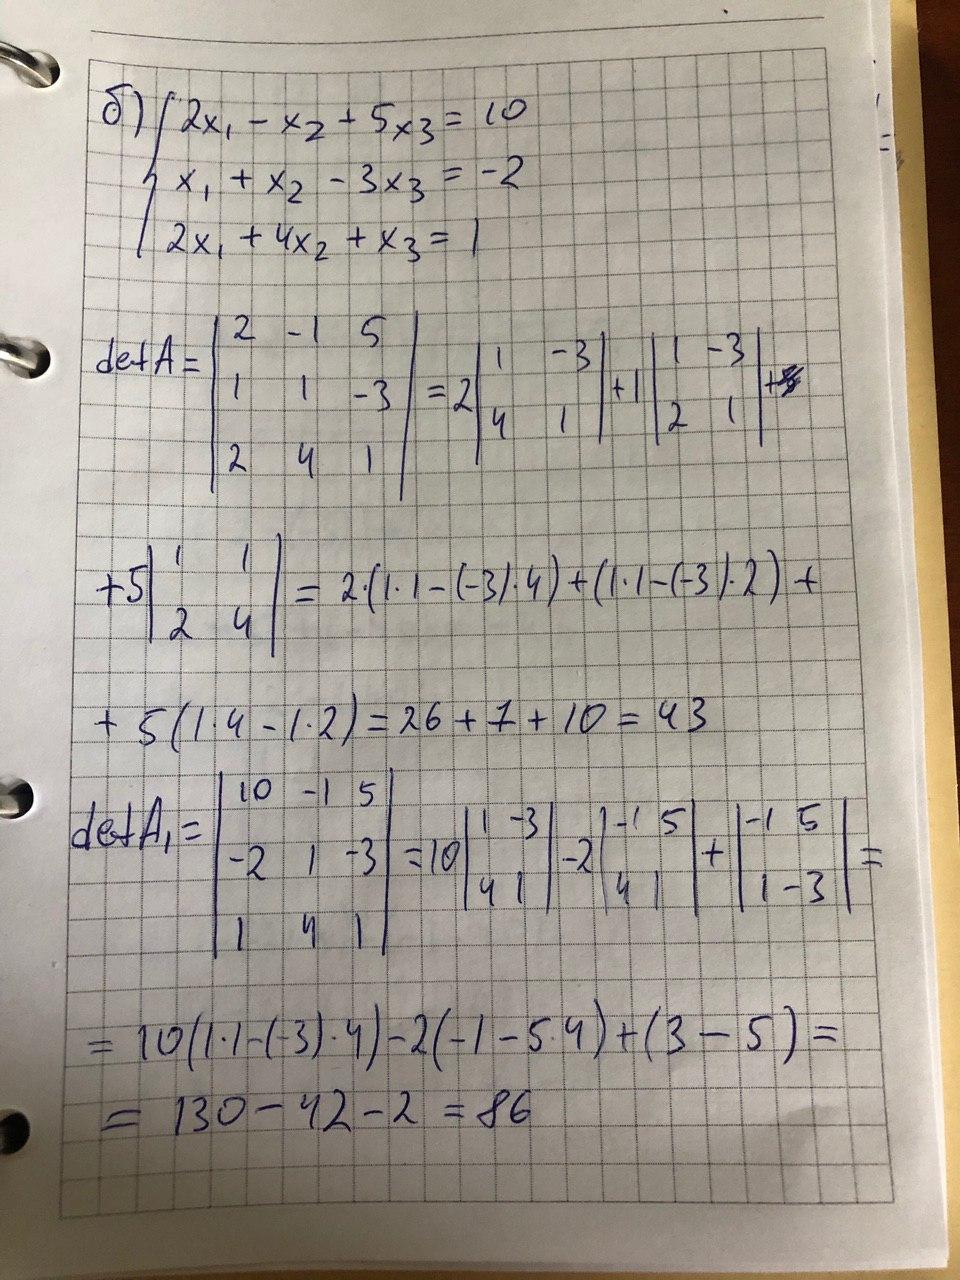 б) { 2x₁ - x₂ + 5x₃ = 10
x₁ + x₂ - 3x₃ = -2
2x₁ + 4x₂ + x₃ = 1
detA = | 2 -1 5 | = 2 | 1 -3 | + 1 | 1 -3 | +
| 1 1 -3 | | 4 1 | | 2 1 |
| 2 4 1 |
+ 5 | 1 1 | = 2·(1·1-(-3)·4) + (1·1-(-3)·2) +
| 2 4 |
+ 5(1·4 - 1·2) = 26 + 7 + 10 = 43
detA₁ = | 10 -1 5 | = 10 | 1 -3 | - 2 | -1 5 | + | -1 5 | =
| -2 1 -3 | | 4 1 | | 4 1 | | 1 -3 |
| 1 4 1 |
= 10(1·1-(-3)·4) - 2(-1 - 5·4) + (3 - 5) =
= 130 - 42 - 2 = 86